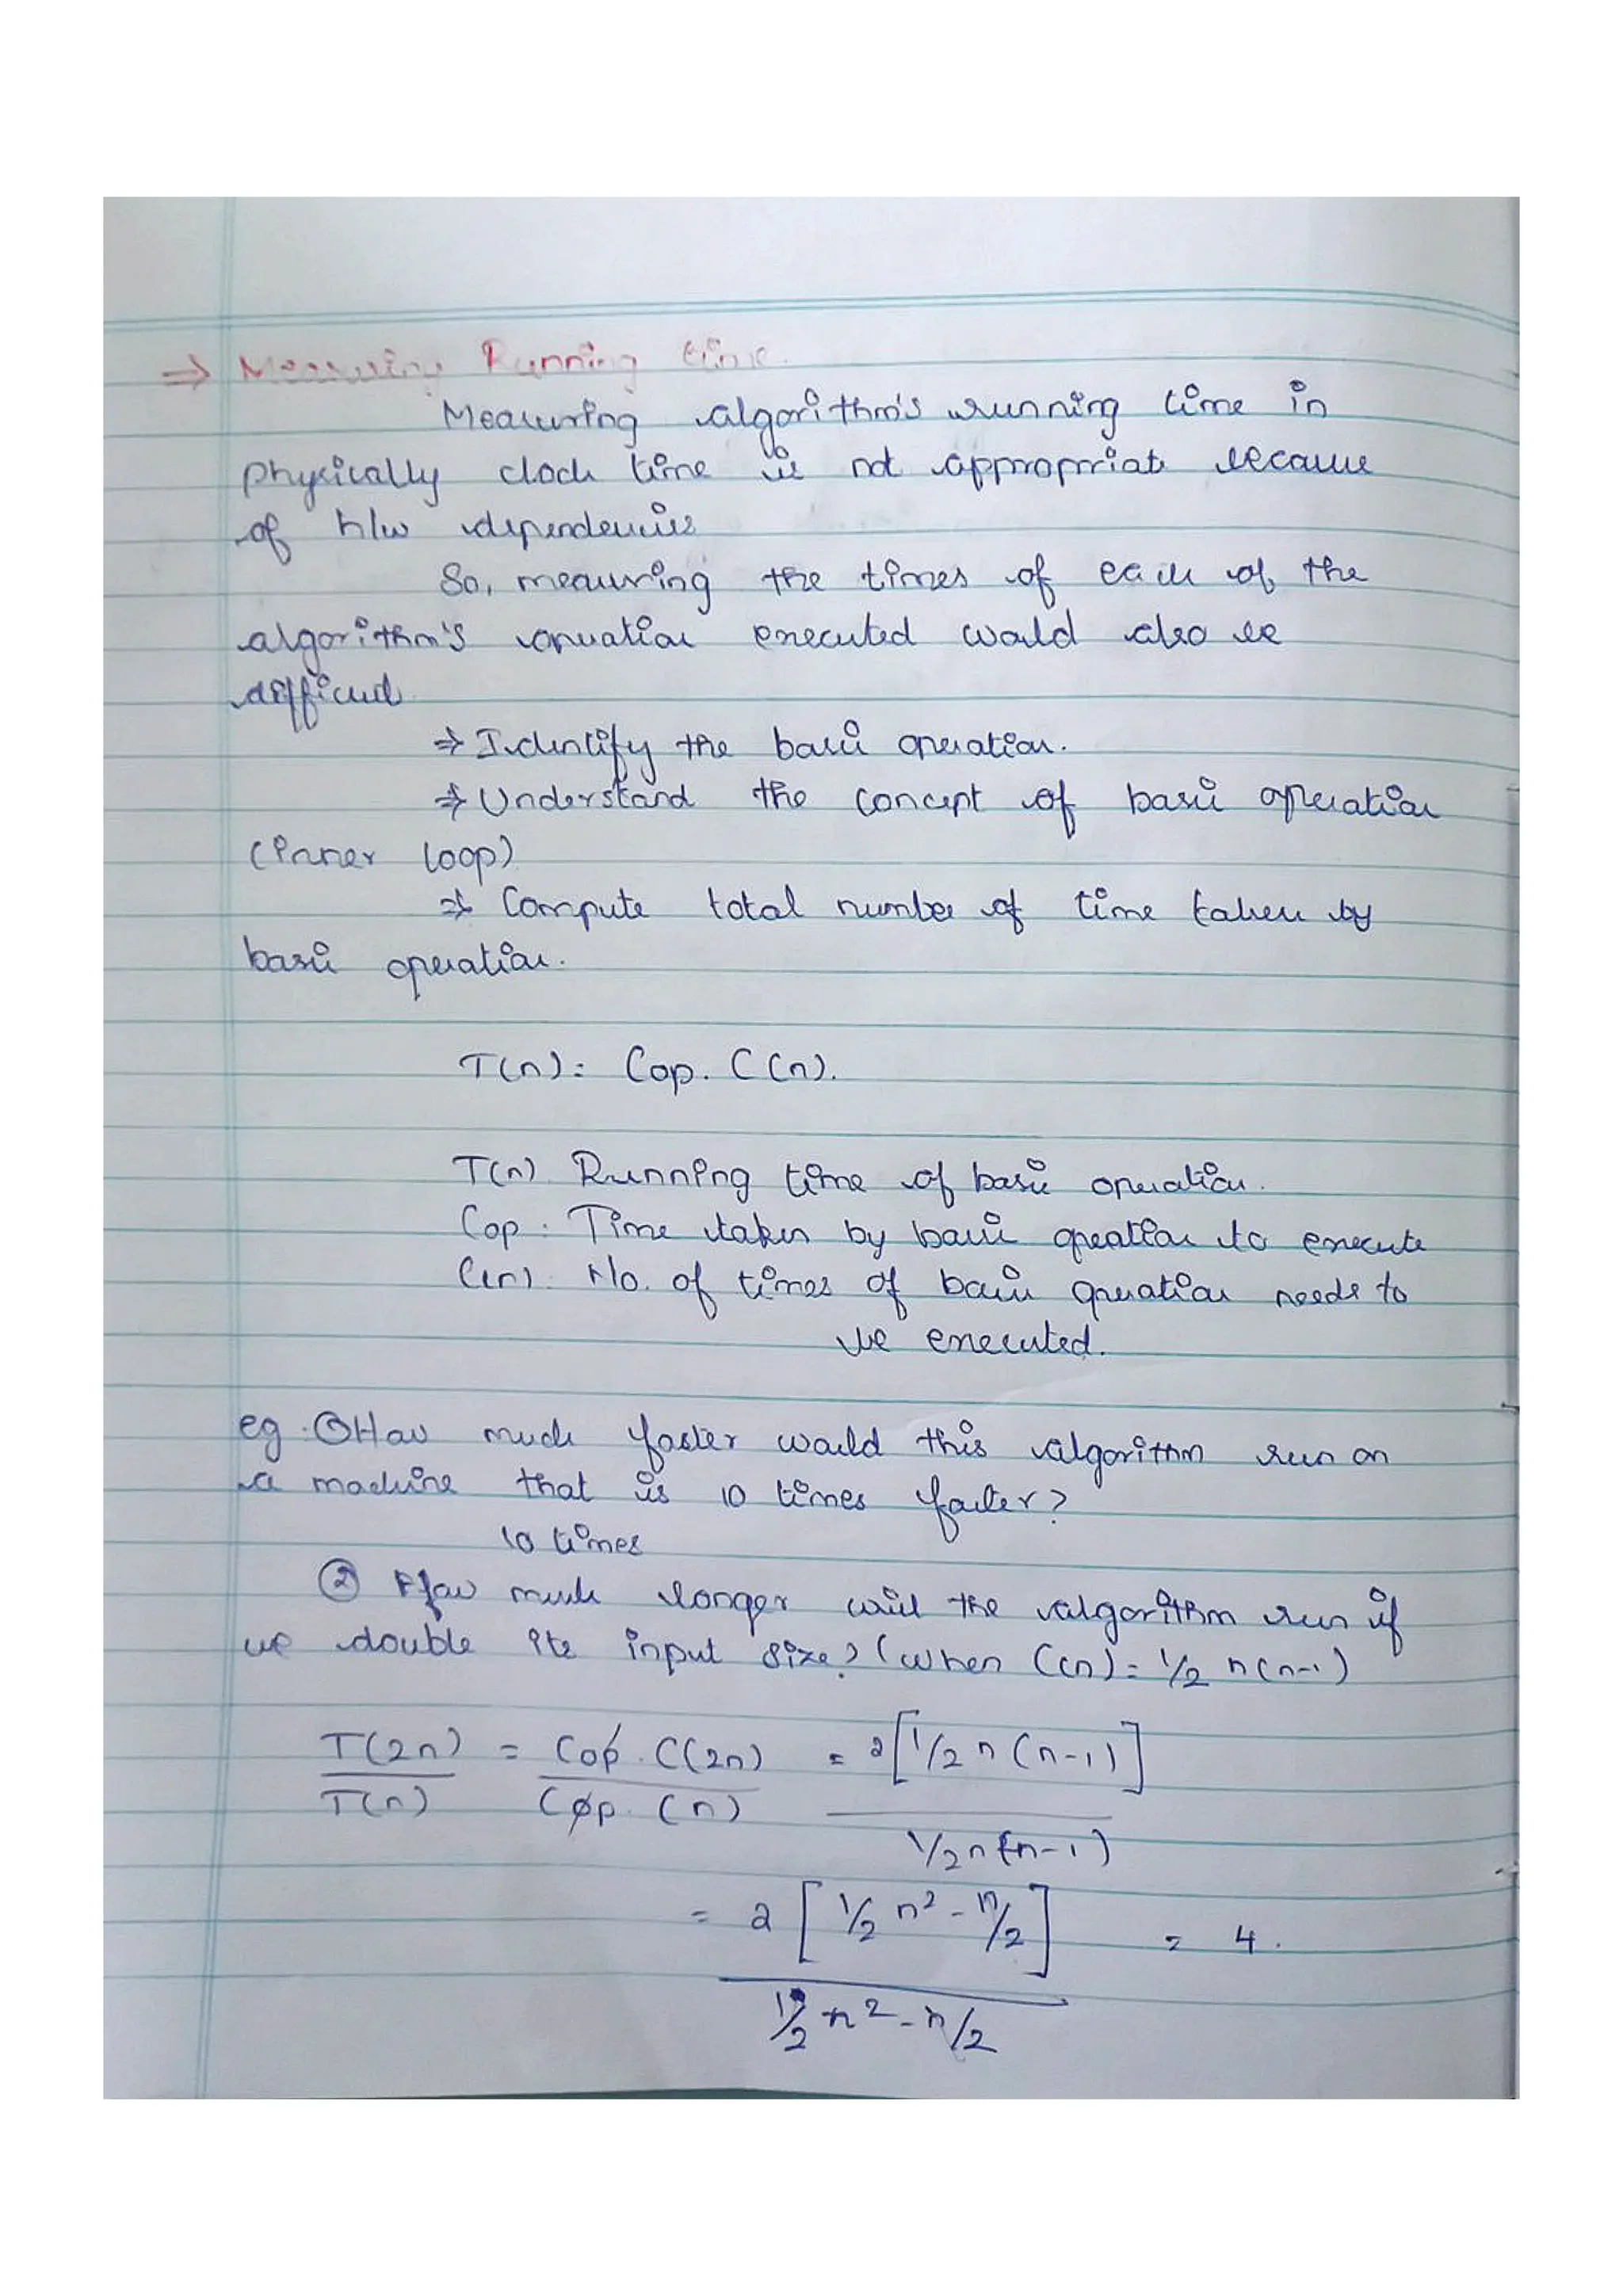 ⇒ Measuring Running time.
Measuring algorithm's running time in
physically clock time is not appropriate because
of h/w dependencies
So, measuring the times of each of the
algorithm's operation executed would also be
difficult
⇒ Identify the basic operation.
⇒ Understand the concept of basic operation
(inner loop)
⇒ Compute total number of time taken by
basic operation.
T(n) = Cop. C(n).
T(n) Running time of basic operation.
Cop : Time taken by basic operation to execute
C(n) : No. of times of basic operation needs to
be executed.
eg. ① How much faster would this algorithm run on
a machine that is 10 times faster?
10 times
② How much longer will the algorithm run if
we double its input size? (when C(n) = 1/2 n(n-1)
T(2n) = Cop . C(2n) = 2[1/2 n (n-1)]
T(n) Cop. (n) 1/2 n(n-1)
= 2 [1/2 n² - n/2] = 4.
1/2 n² - n/2